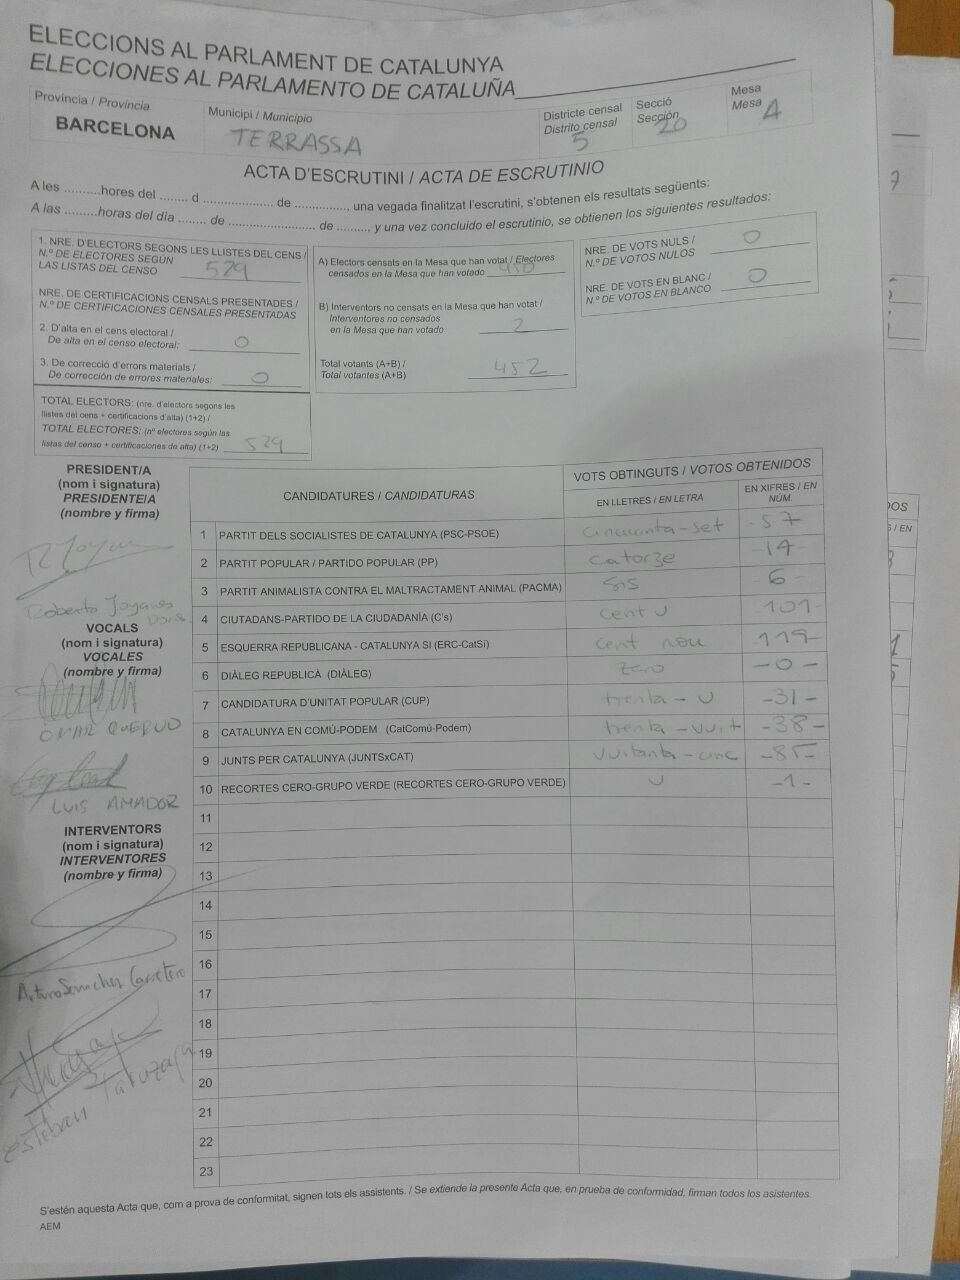 ELECCIONS AL PARLAMENT DE CATALUNYA
ELECCIONES AL PARLAMENTO DE CATALUÑA
Provincia / Provincia
BARCELONA
Municipi / Municipio
TERRASSA
Districte censal
Distrito censal
5
Secció
Sección
20
Mesa
Mesa
A
ACTA D'ESCRUTINI / ACTA DE ESCRUTINIO
A les ..........hores del ........ d .................... de ..............., una vegada finalitzat l'escrutini, s'obtenen els resultats següents:
A las .........horas del día ........ de ......................... de .........., y una vez concluido el escrutinio, se obtienen los siguientes resultados:
1. NRE. D'ELECTORS SEGONS LES LLISTES DEL CENS /
N.º DE ELECTORES SEGÚN
LAS LISTAS DEL CENSO 529
NRE. DE CERTIFICACIONS CENSALS PRESENTADES /
N.º DE CERTIFICACIONES CENSALES PRESENTADAS
2. D'alta en el cens electoral /
De alta en el censo electoral: 0
3. De correcció d'errors materials /
De corrección de errores materiales: 0
TOTAL ELECTORS: (nre. d'electors segons les
llistes del cens + certificacions d'alta) (1+2) /
TOTAL ELECTORES: (nº electores según las
listas del censo + certificaciones de alta) (1+2) 529
A) Electors censats en la Mesa que han votat / Electores
censados en la Mesa que han votado 450
B) Interventors no censats en la Mesa que han votat /
Interventores no censados
en la Mesa que han votado 2
Total votants (A+B) /
Total votantes (A+B) 452
NRE. DE VOTS NULS /
N.º DE VOTOS NULOS 0
NRE. DE VOTS EN BLANC /
N.º DE VOTOS EN BLANCO 0
PRESIDENT/A
(nom i signatura)
PRESIDENTE/A
(nombre y firma)
Roberto Joyanes
VOCALS
(nom i signatura)
VOCALES
(nombre y firma)
OMAR CUERVO
LUIS AMADOR
INTERVENTORS
(nom i signatura)
INTERVENTORES
(nombre y firma)
Arturo Sanchez Carretero
Esteban
CANDIDATURES / CANDIDATURAS
VOTS OBTINGUTS / VOTOS OBTENIDOS
EN LLETRES / EN LETRA
EN XIFRES / EN
NÚM.
1 PARTIT DELS SOCIALISTES DE CATALUNYA (PSC-PSOE) cincuanta-set -57-
2 PARTIT POPULAR / PARTIDO POPULAR (PP) catorze -14-
3 PARTIT ANIMALISTA CONTRA EL MALTRACTAMENT ANIMAL (PACMA) sis -6-
4 CIUTADANS-PARTIDO DE LA CIUDADANÍA (C's) cent u -101-
5 ESQUERRA REPUBLICANA - CATALUNYA SI (ERC-CatSí) cent nou -119-
6 DIÀLEG REPUBLICÀ (DIÀLEG) zero -0-
7 CANDIDATURA D'UNITAT POPULAR (CUP) trenta-u -31-
8 CATALUNYA EN COMÚ-PODEM (CatComú-Podem) trenta-vuit -38-
9 JUNTS PER CATALUNYA (JUNTSxCAT) vuitanta-cinc -85-
10 RECORTES CERO-GRUPO VERDE (RECORTES CERO-GRUPO VERDE) u -1-
11
12
13
14
15
16
17
18
19
20
21
22
23
S'estén aquesta Acta que, com a prova de conformitat, signen tots els assistents. / Se extiende la presente Acta que, en prueba de conformidad, firman todos los asistentes.
AEM